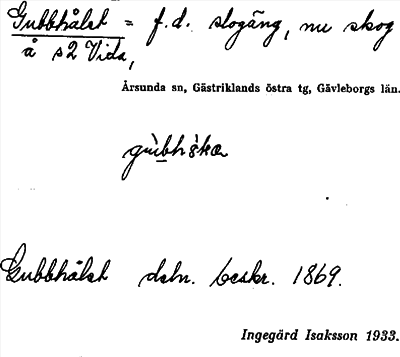 Gubbhålet = f.d. slogäng, nu skog
å s2 Vida,
Årsunda sn, Gästriklands östra tg, Gävleborgs län.
Gubbhålet dsbn. beskr. 1869.
Ingegärd Isaksson 1933.